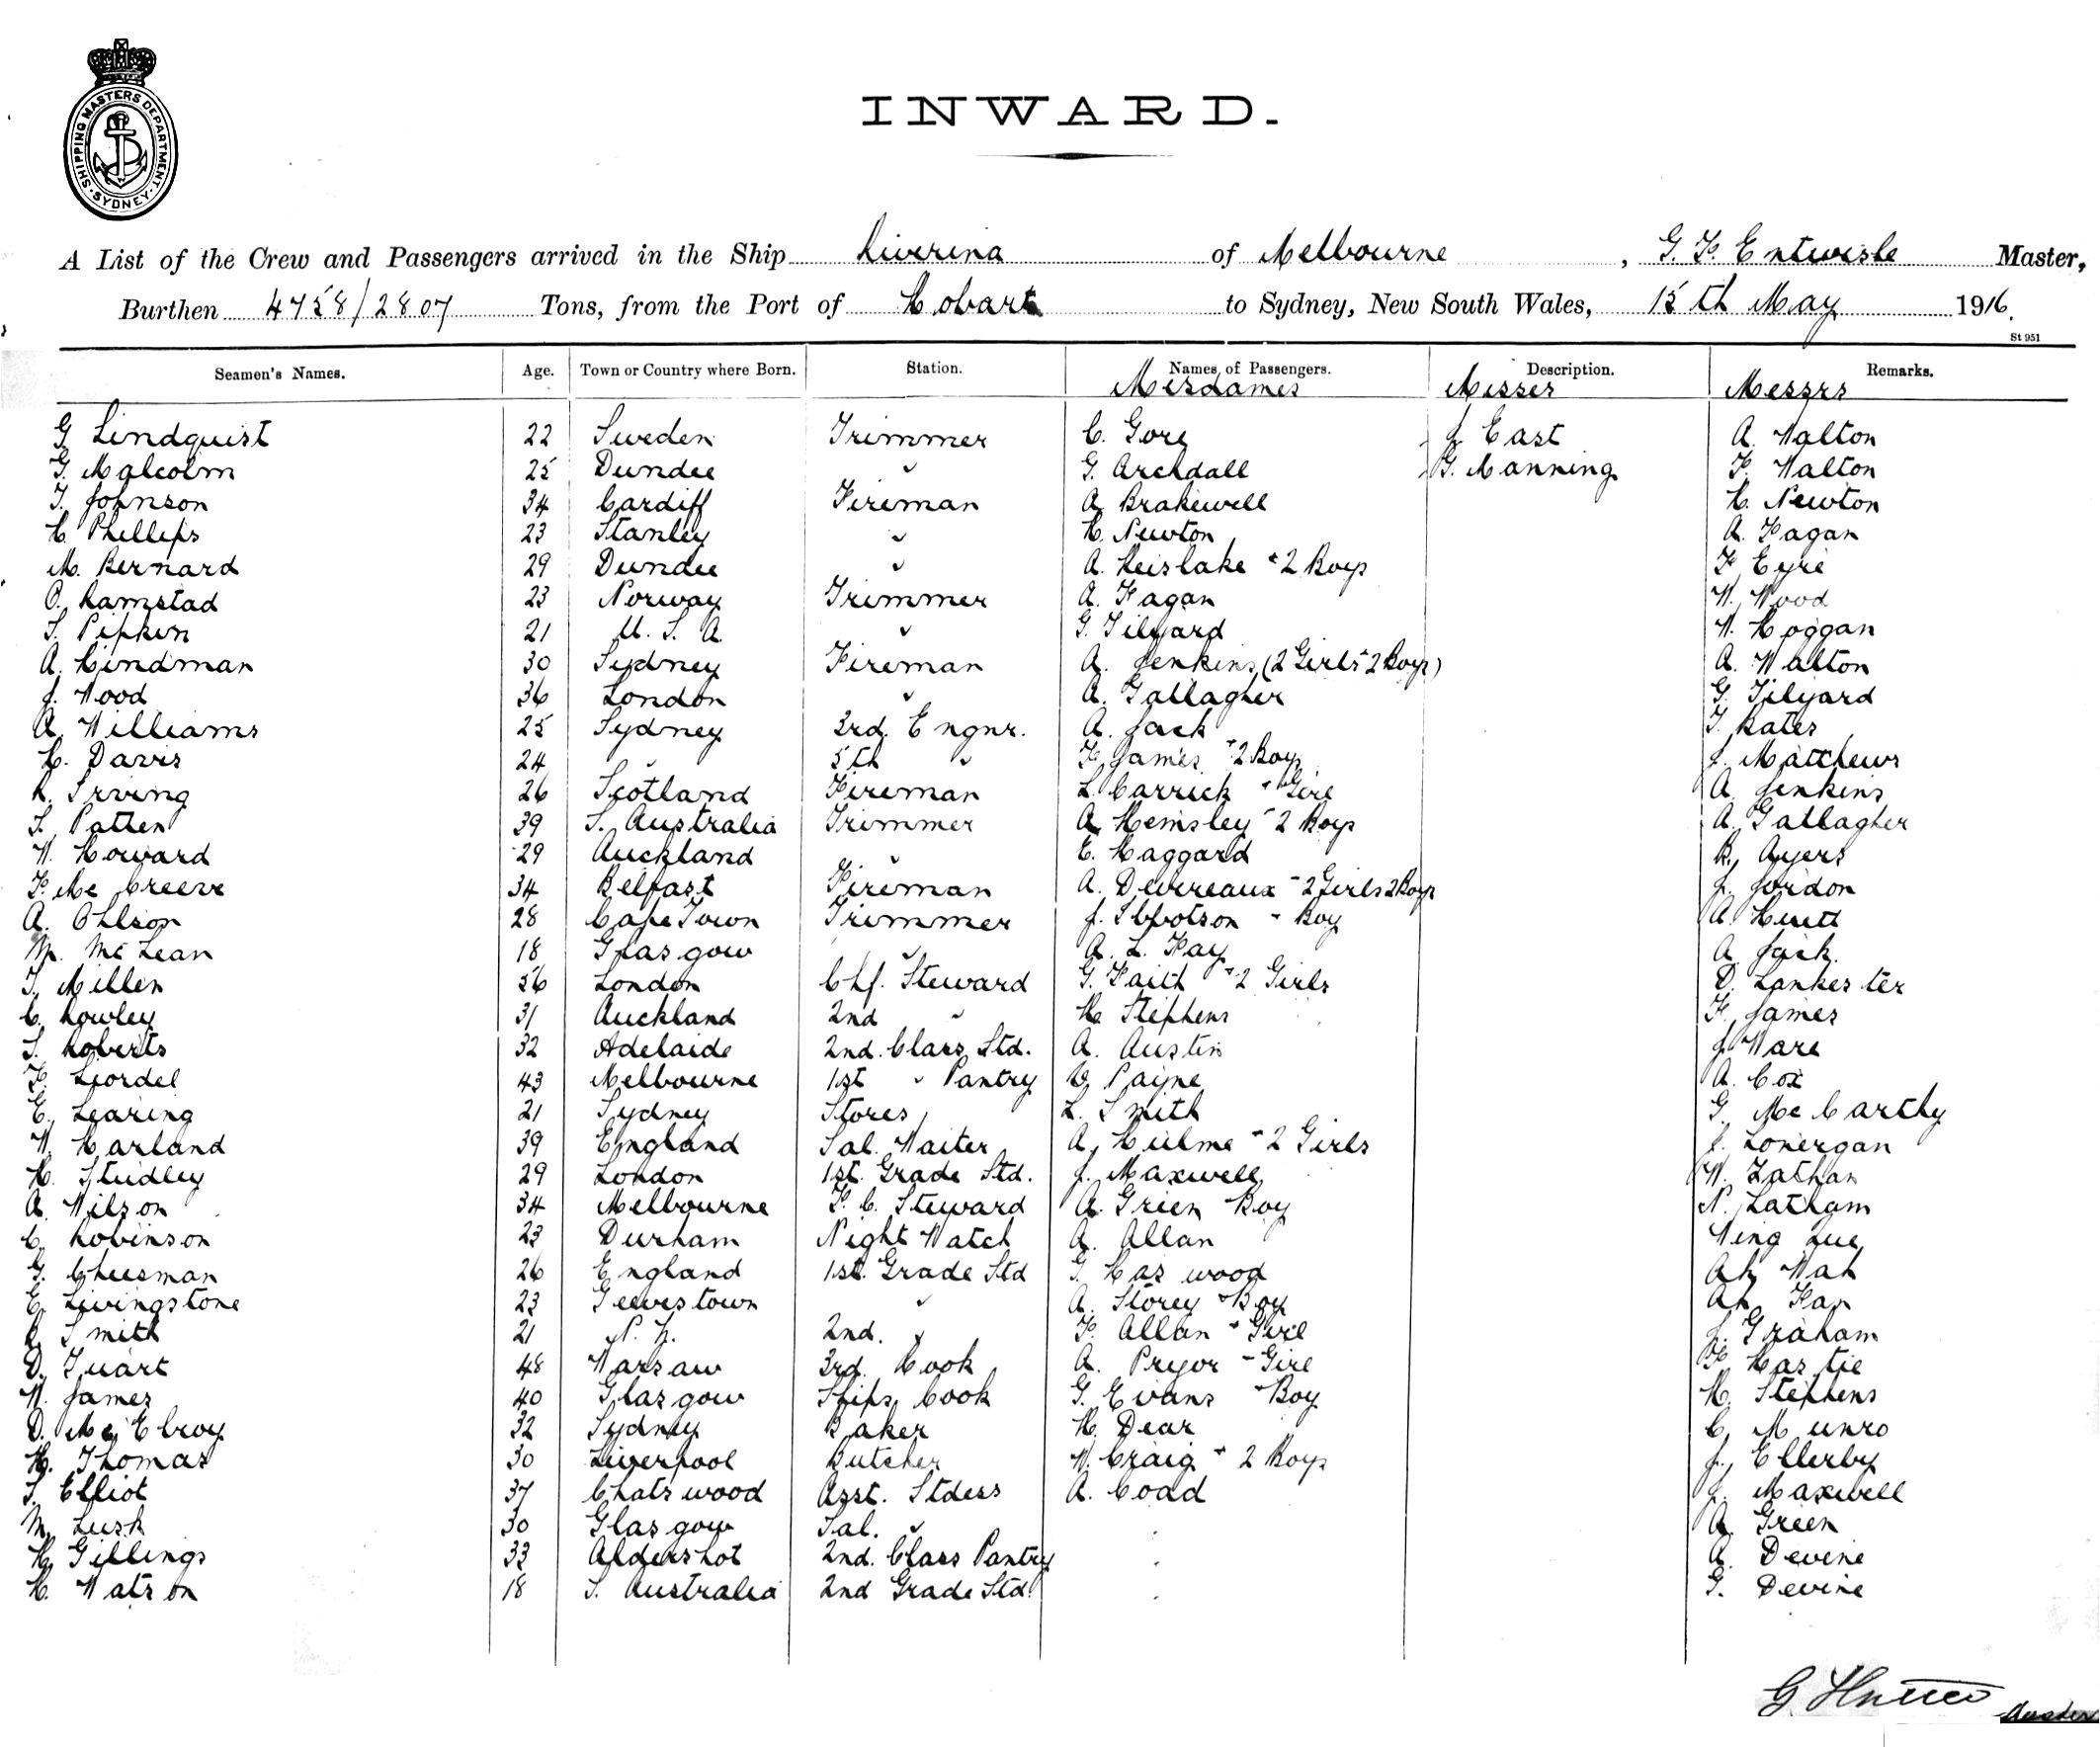 SHIPPING MASTERS DEPARTMENT · SYDNEY ·
INWARD.
A List of the Crew and Passengers arrived in the Ship Riverina of Melbourne, G. F. Entwisle Master,
Burthen 4758/2807 Tons, from the Port of Hobart to Sydney, New South Wales, 15th May 1916.
St 951
Seamen's Names. Age. Town or Country where Born. Station. Names of Passengers. Description. Remarks.
Mesdames Misses Messrs
G Lindquist 22 Sweden Trimmer C. Gore J East A. Walton
G. Malcolm 25 Dundee " G. Archdall G. Manning F. Walton
T. Johnson 34 Cardiff Fireman A Brakewell H. Newton
H. Phillips 23 Stanley " H. Newton A. Fagan
M. Bernard 29 Dundee " A. Keislake + 2 Boys F Eyre
O. Ramstad 23 Norway Trimmer A. Fagan W. Wood
S. Pipkin 21 U. S. A " G. Tilyard W. Hoggan
A. Hindman 30 Sydney Fireman A. Jenkins (2 Girls + 2 Boys) A. Walton
J. Wood 36 London " A. Gallagher G. Tilyard
A. Williams 25 Sydney 3rd. Engnr. A. Jack T. Bates
H. Davis 24 " 5th " F James + 2 Boys J. Matthews
R. Irving 26 Scotland Fireman L. Carrick + Girl A. Jenkins
S. Patten 39 S. Australia Trimmer A Hemsley - 2 Boys A. Gallagher
W. Howard 29 Auckland " E. Haggard B. Ayers
F. McCreeve 34 Belfast Fireman A. Devereaux - 2 Girls 2 Boys J. Jordon
A. Ohlson 28 Cape Town Trimmer J. Ibbotson - Boy A. Huett
M. McLean 18 Glasgow " A. L. Fay A. Jack.
T. Millen 56 London Chf. Steward G. Faith + 2 Girls D. Lankester
C. Rowley 31 Auckland 2nd " H. Stephens F. James
S. Roberts 32 Adelaide 2nd. Class Std. A. Austin J. Ware
F. Liordel 43 Melbourne 1st " Pantry Payne A. Cox
E. Learing 21 Sydney Stores L. Smith G. McCarthy
W. Harland 39 England Sal. Waiter A. Hulme + 2 Girls J. Lonergan
H. Studley 29 London 1st. Grade Std. J. Maxwell W. Lathan
A. Wilson 34 Melbourne F. C. Steward A. Green Boy N. Latham
C. Robinson 23 Durham Night Watch A. Allan Wing Lue
G. Cheesman 26 England 1st. Grade Std G. Haswood Ah Wah
E. Livingstone 23 Geevestown " A. Storey + Boy Ah Fan
Smith 21 N. Z. 2nd. " F. Allan + Girl J. Graham
D. Tuart 48 Warsaw 3rd. Cook A. Pryor - Girl F. Hastie
W. James 40 Glasgow Ships Cook G. Evans Boy H. Stephens
D. McElroy 32 Sydney Baker H. Dear C. Munro
H. Thomas 30 Liverpool Butcher W. Craig + 2 Boys J. Ellerby
S. Elliot 37 Chatswood Asst. Stdess A. Coad J. Maxwell
M. Lusk 30 Glasgow Sal. " A. Green
H. Gillings 33 Aldershot 2nd. Class Pantry A. Devine
H. Watson 18 S. Australia 2nd Grade Std. G. Devine